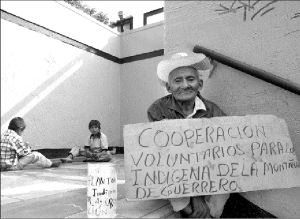 COOPERACION
VOLUNTARIOS PARA LO
INDIGENA DE LA MONTAÑA
DE GUERRERO
PLANTON